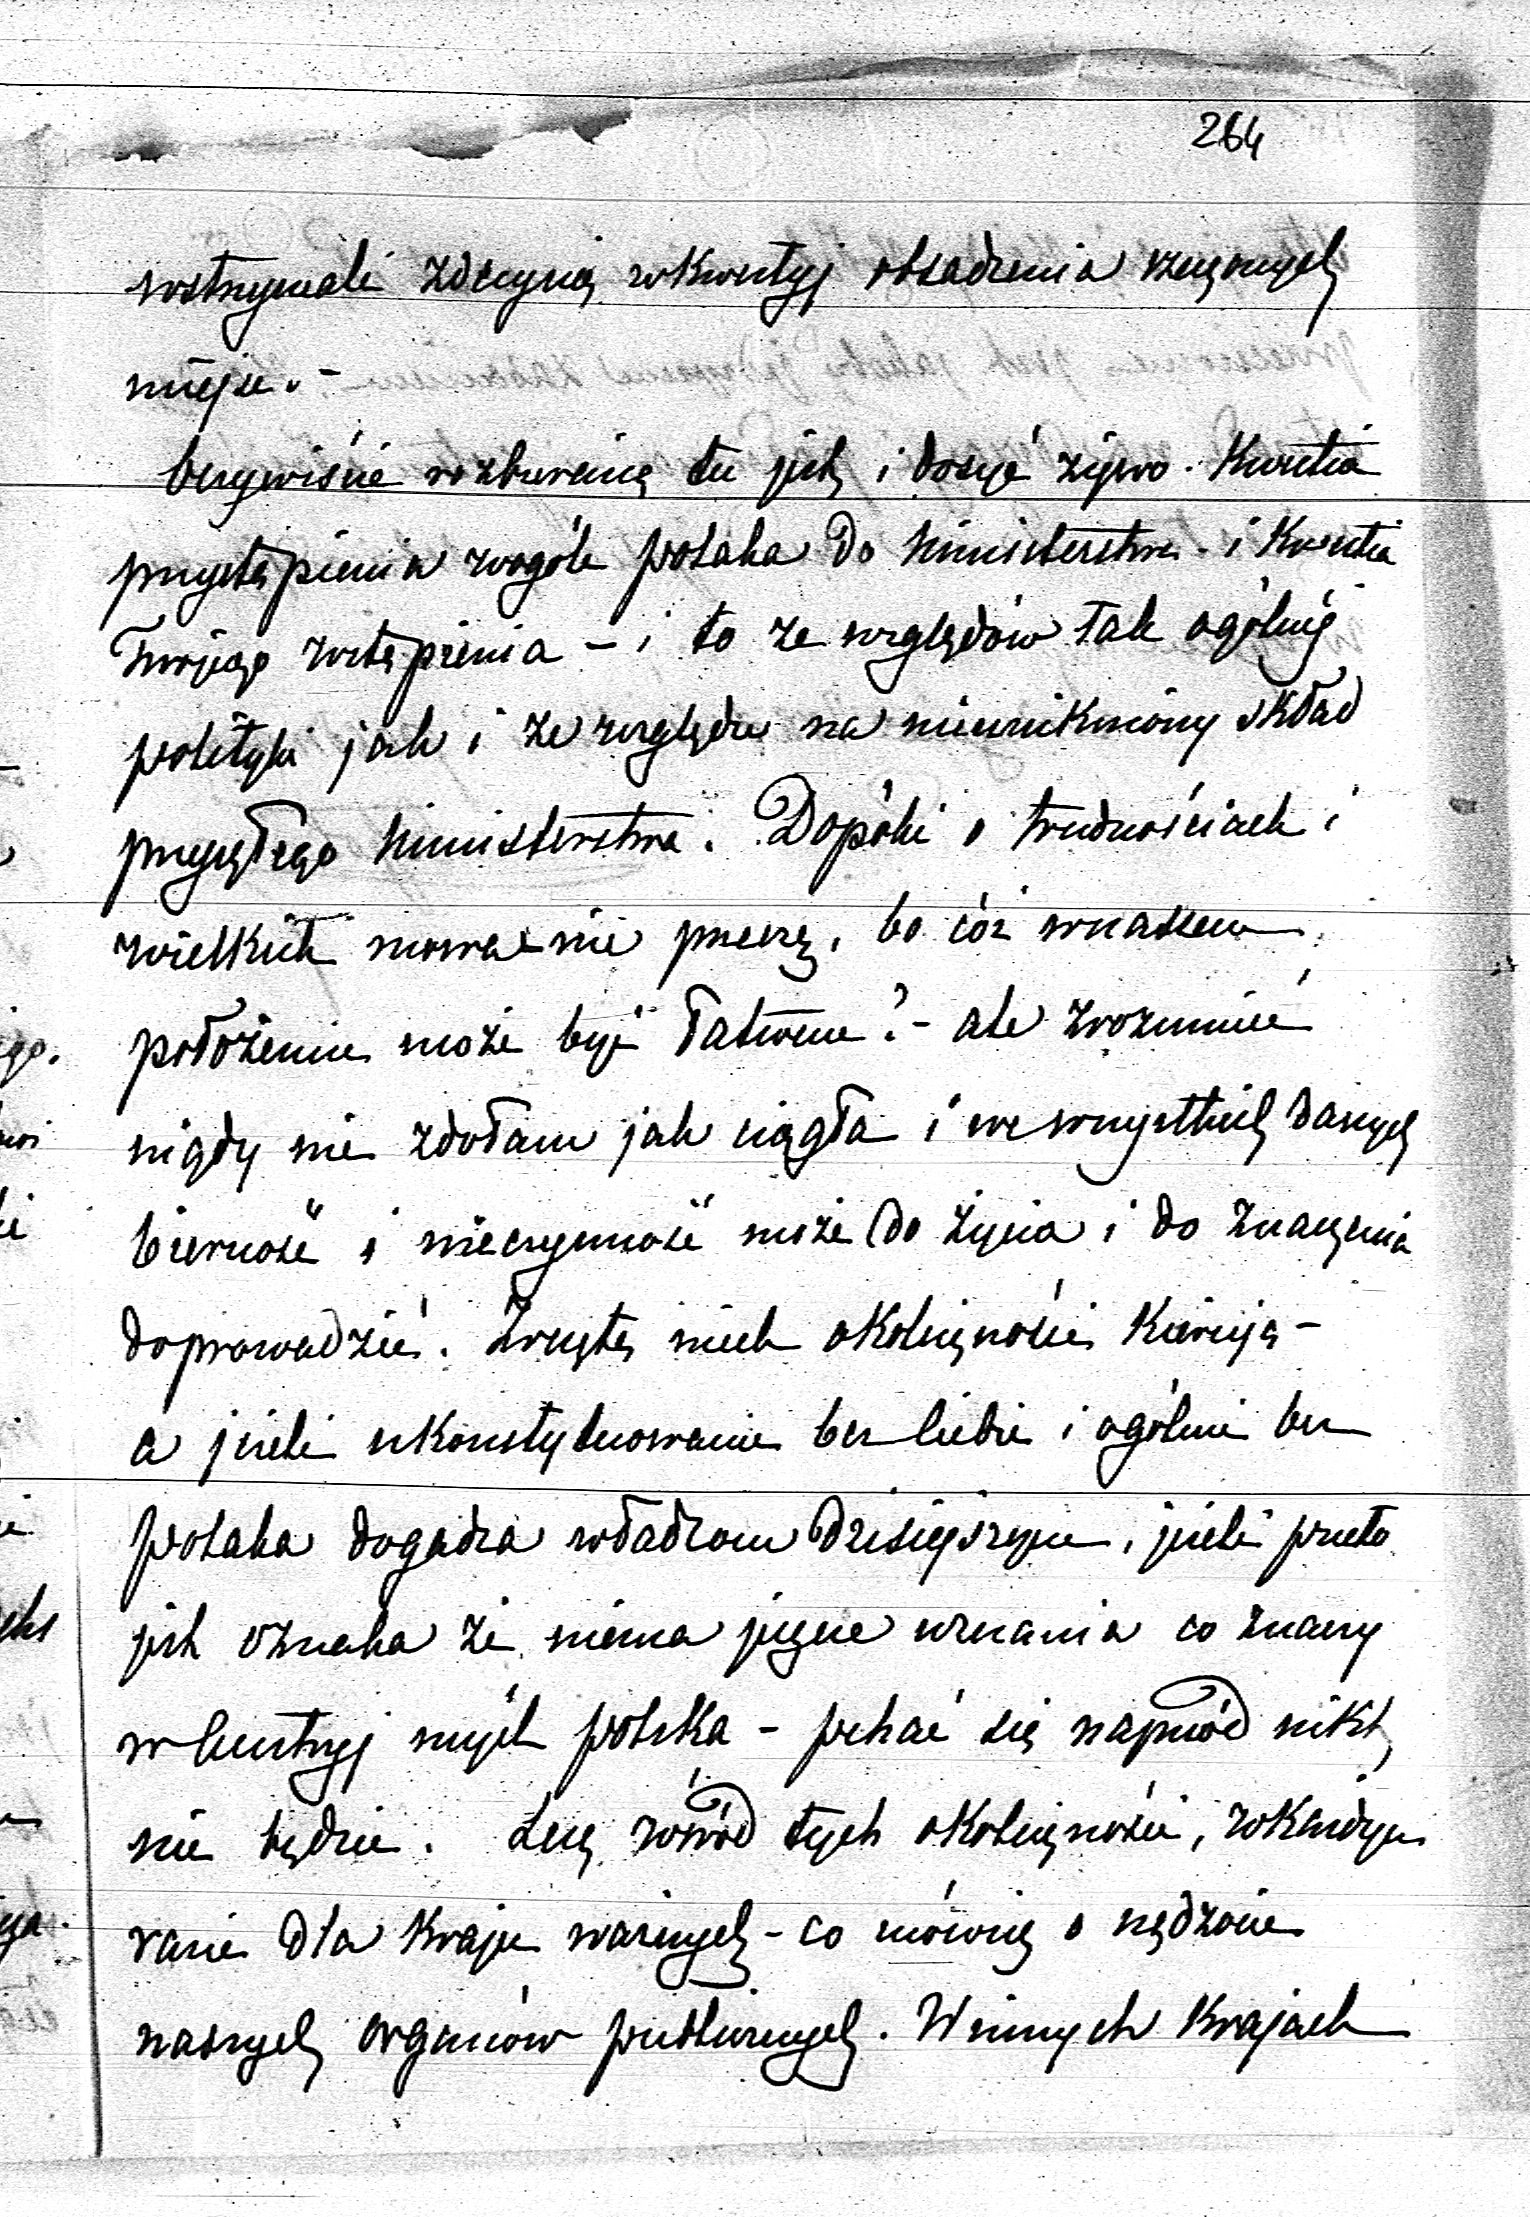 264
wstrzymali zdecyzią w kwestyj obsadzenia rzeczonych
miejsc. -
Oczywiście rozbieraną tu jest i dosyć żywo. Kwestia
przystąpienia wogóle polaka do Ministerstwa - i Kwestia
Twojego wstąpienia - i to ze względów tak ogólnéj
polityki jak i ze względu na nieunikniony skład
przyszłego Ministerstwa. Dopóki o trudnościach i
wielkich mowa nie przeczę, bo cóż w naszem
położeniu może być łatwem? - ale zrozumieć
nigdy nie zdołam jak ciągła i we wszystkich danych
bierność i nieczynność może do życia i do znaczenia
doprowadzić. Zresztą niech okoliczności kierują -
a jeżeli ukonstytuowanie bez Ciebie i ogólnie bez
polaka dogadza władzom dzisiejszym, jeżeli przeto
jest oznaka że niema jeszcze uznania co znaczy
w Austryj myśl polska - pchać się naprzód nikt
nie będzie. Lecz wśród tych okoliczności, w każdym
razie dla Kraju ważnych - co mówić o nędzocie
naszych organów publicznych. W innych Krajach